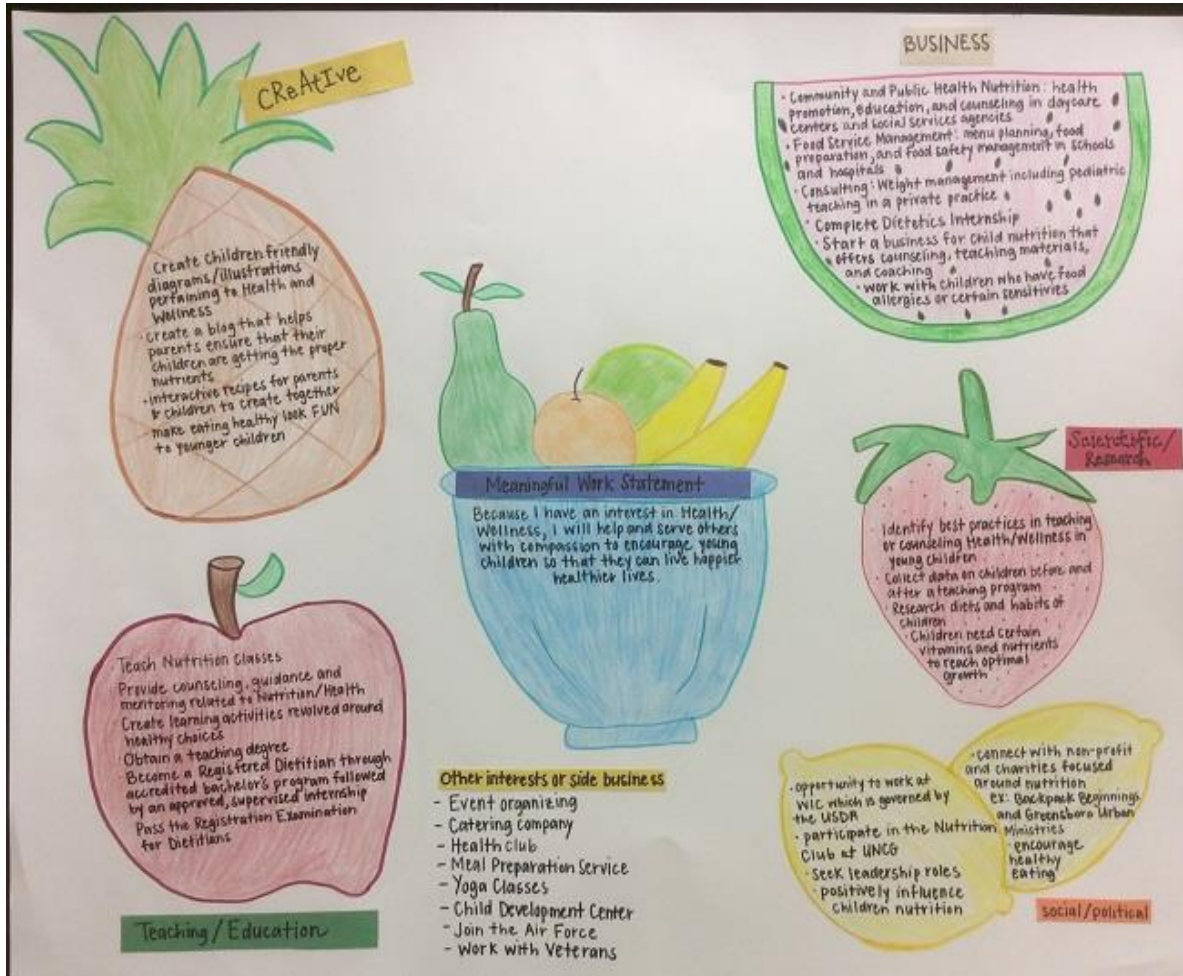 CReAtIve
Create Children friendly
diagrams/illustrations
pertaining to Health and
Wellness
· create a blog that helps
parents ensure that their
children are getting the proper
nutrients
· interactive recipes for parents
& children to create together
make eating healthy look FUN
to younger children
BUSINESS
· Community and Public Health Nutrition: health
promotion, education, and counseling in daycare
centers and social services agencies
· Food Service Management: menu planning, food
preparation, and food safety management in schools
and hospitals
· Consulting: Weight management including pediatric
teaching in a private practice
· Complete Dietetics Internship
· Start a business for child nutrition that
offers counseling, teaching materials,
and coaching
· work with children who have food
allergies or certain sensitivies
Meaningful Work Statement
Because I have an interest in Health/
Wellness, I will help and serve others
with compassion to encourage young
children so that they can live happier
healthier lives.
Scientific/
Research
Identify best practices in teaching
or counseling Health/Wellness in
young children
· Collect data on children before and
after a teaching program
· Research diets and habits of
children
· Children need certain
vitamins and nutrients
to reach optimal
growth
· Teach Nutrition Classes
Provide counseling, guidance and
mentoring related to Nutrition/Health
Create learning activities revolved around
healthy choices
Obtain a teaching degree
Become a Registered Dietitian through
accredited bachelor's program followed
by an approved, supervised internship
Pass the Registration Examination
for Dietitians
Teaching/Education
Other interests or side business
- Event organizing
- Catering company
- Health club
- Meal Preparation Service
- Yoga Classes
- Child Development Center
- Join the Air Force
- Work with Veterans
· opportunity to work at
WIC which is governed by
the USDA
· participate in the Nutrition
Club at UNCG
· seek leadership roles
· positively influence
children nutrition
· connect with non-profit
and charities focused
around nutrition
ex: Backpack Beginnings
and Greensboro Urban
Ministries
· encourage
healthy
eating
social/political